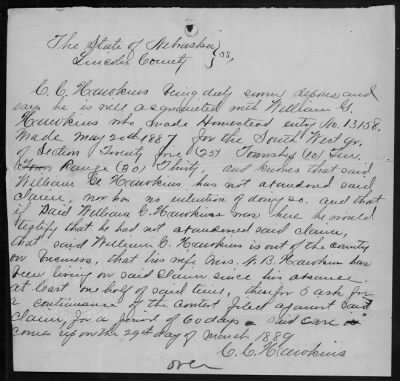 The State of Nebraska
Lincoln County } ss,
C. C. Hawkins being duly sworn deposes and
says he is well acquainted with William G.
Hawkins who made Homestead entry No. 13158.
Made May 20th 1887 for the South West qr.
of Section Twenty five (25) Township (10) Ten.
Range (30) Thirty. and knows that said
William G Hawkins has not abandoned said
claim, nor has no intention of doing so. and that
if Said William G. Hawkins was here he would
testify that he had not abandoned said claim,
that said William G. Hawkins is out of the county
on business, that his wife Mrs. N. B. Hawkins has
been living on said claim since his absence
at least one half of said time, therefor I ask for
a continuance of the contest filed against said
claim, for a period of 60 days. said case is
comes up on the 29th day of March 1889
C. C. Hawkins
over